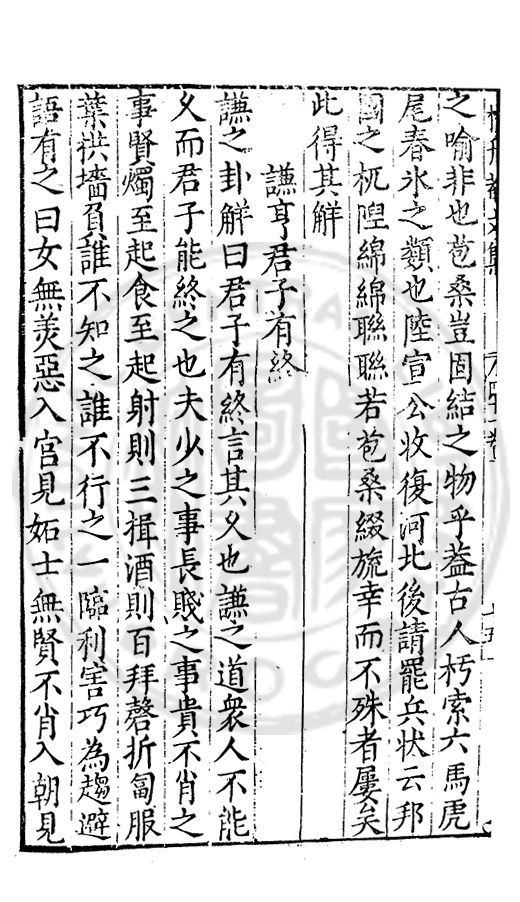 之喻非也苞桑豈固結之物乎葢古人朽索六馬虎
尾春氷之類也陸宣公收復河北後請罷兵狀云邦
國之杌隉綿綿聯聯若苞桑綴旒幸而不殊者屢矣
此得其解
謙亨君子有終
謙之卦解曰君子有終言其久也謙之道衆人不能
久而君子能終之也夫少之事長賤之事貴不肖之
事賢燭至起食至起射則三揖酒則百拜磬折匐服
葉拱墻負誰不知之誰不行之一臨利害巧為趨避
語有之曰女無羡惡入宫見妬士無賢不肖入朝見